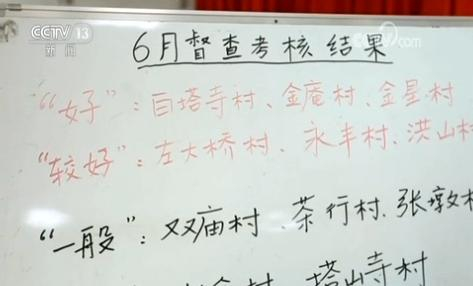 CCTV 13
新闻
6月督查考核结果
“好”：白塔寺村、金庵村、金星村
“较好”：左大桥村、永丰村、洪山村
“一般”：双庙村、茶行村、张墩村
塔山寺村